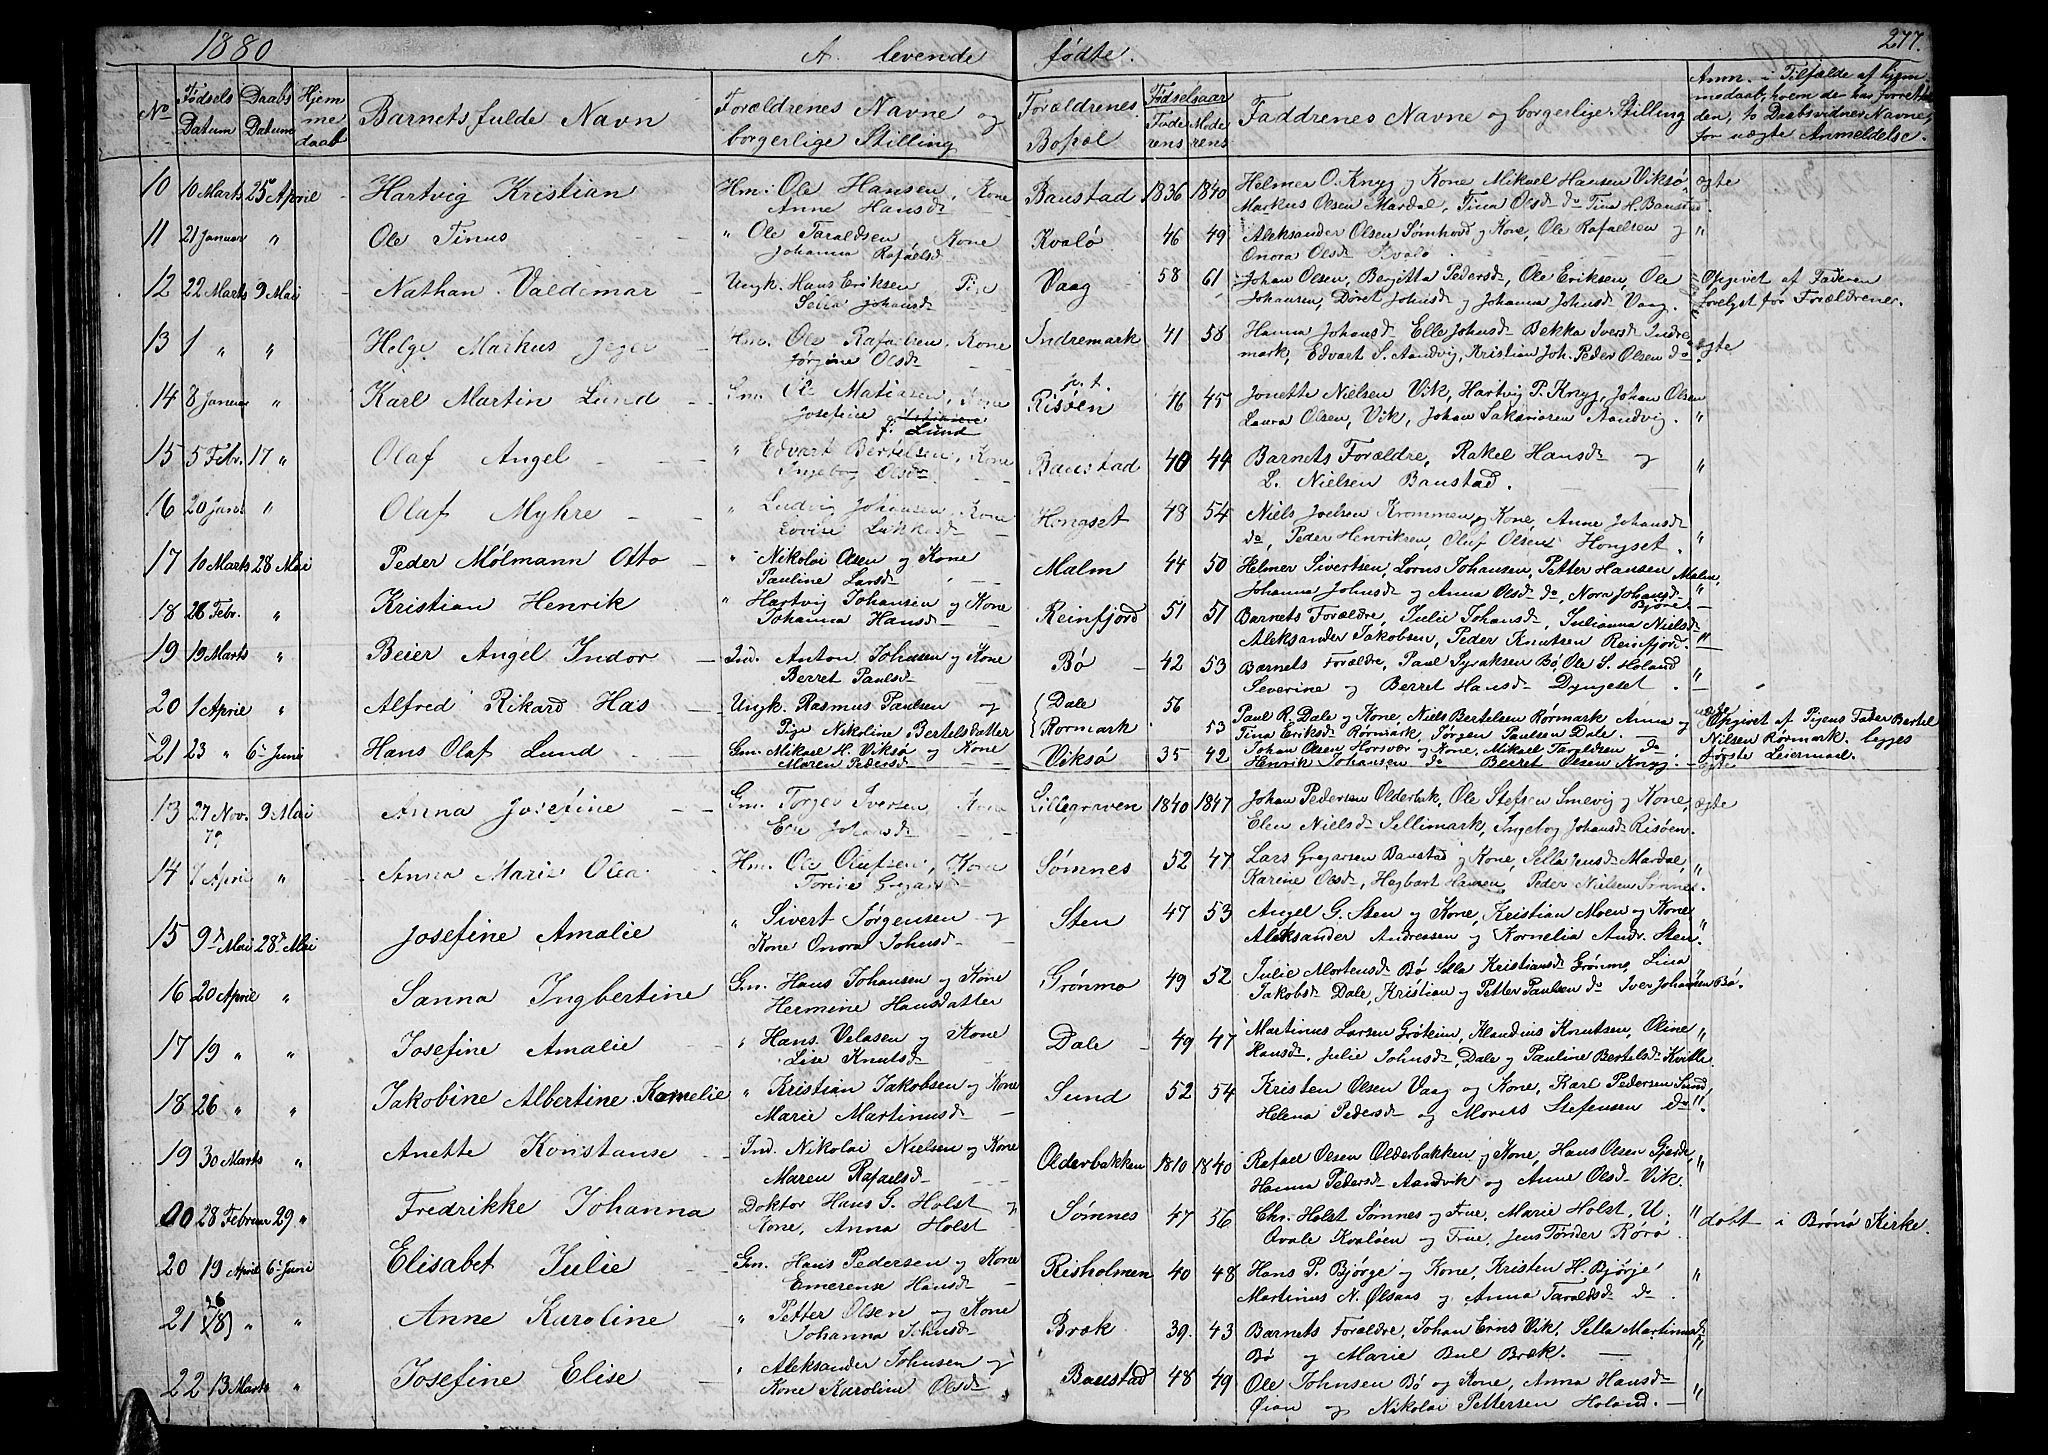 1880 A. levende fødte. 277.
No Fødsels Datum Daabs Datum Hjemmedaab Barnets fulde Navn Forældrenes Navne og borgerlige Stilling Forældrenes Bopæl Fødselsaar Faderens Moderens Faddrenes Navne og borgerlige Stilling Anm. i Tilfælde af hjemmedaab, hvem der har forrettet den, to Daabsvidners Navne, for uægte Anmeldelse.
10 10 Marts 25 April Hartvig Kristian Hm. Ole Hansen, Kone Anne Hansd. Baustad 1836 1840 Helmer O. Knyg og Kone Mikael Hansen Viksø, Markus Olsen Mardal, Tina Olsd. do Tina H. Baustad. ægte
11 21 Januar " Ole Tinus " Ole Taraldsen, Kone Johanna Rafaelsd. Kvalø 46 49 Aleksander Olsen Sømhovd og Kone, Ole Rafaelsen og Onora Olsd. Kvalø "
12 22 Marts 9 Mai Nathan Valdemar Ungk. Hans Eriksen Pige Sella Johansd. Vaag 58 61 Johan Olsen, Begitta Pedersd. Ole Eriksen, Ole Johansen, Doret Johnsd. og Johanna Johnsd. Vaag. Opgivet af Faderen lovlyst for Forældrene.
13 1 " " Helge Markus Jeger Hm. Ole Rafaelsen, Kone Jørgine Olsd. Indremark 41 58 Hanna Johansd. Elle Johnsd. Bekka Iversd. Indremark, Edvart S. Aandvig, Kristian Joh. Peder Olsen do ægte
14 8 Januar " Karl Martin Lund Gm. Ole Matiasen, Kone Josefine f. Lund p.t. Risøen 46 45 Jonette Nielsen Vik, Hartvig P. Knyg, Johan Olsen Laura Olsen, Vik, Johan Sakariasen Aandvig. "
15 5 Febr. 17 " Olaf Angel " Edvart Bertelsen, Kone Ingeborg Olsd. Baustad 40 44 Barnets Forældre, Rakel Hansd. og L. Nielsen Baustad. "
16 20 Janr. " Olaf Myhre " Ludvig Johansen, Kone Lovise Lukkesd. Hongset 48 54 Niels Joelsen Krommen og Kone, Anne Johansd. do, Peder Henriksen, Oluf Olsen Hongset. "
17 10 Marts 28 Mai Peder Mølmann Otto " Nikolai Olsen og Kone Pauline Larsd. Malm 44 50 Helmer Sivertsen, Lorns Johansen, Petter Hansen Malm, Johanna Johnsd. og Anna Olsd. do, Nora Johansd. Bjøre "
18 28 Febr. " Kristian Henrik " Hartvig Johansen og Kone Johanna Hansd. Reinfjord 51 51 Barnets Forældre, Julie Johansd., Julianna Nielsd. Aleksander Jakobsen, Peder Knutsen Reinfjord. "
19 19 Marts " Beier Angel Indor Ind. Anton Johnsen og Kone Berret Paulsd. Bø 42 53 Barnets Forældre, Paul Syraksen Bø, Ole S. Holand Severine og Berret Hansd. Dyngeset. "
20 1 April " Alfred Rikard Has Ungk. Rasmus Paulsen og Pige Nikoline Bertelsdatter Dale Rormark 56 53 Paul R. Dale og Kone, Niels Bertelsen Rørmark Anna og Tina Eriksd. Rørmark, Jørgen Paulsen Dale. uægte Opgivet af Pigens Fader Bertel Nielsen Rørmark. begges første Leiermaal.
21 23 " 6 Juni Hans Olaf Lund Gm. Mikael H. Viksø og Kone Maren Pedersd. Viksø 35 42 Johan Olsen Horsvær og Kone, Mikael Taraldsen do Henrik Johansen do Berret Olsen Knyg. ægte
13 27 Nov. 79 9 Mai Anna Josefine Gm. Torger Iversen, Kone Johansd. Lillegraven 1840 1847 Johan Pedersen Olderbak, Ole Stefsen Smevig og Kone, Elen Nielsd. Sellimark, Ingebog Johansd. Risøen. ægte
14 7 April " Anna Marie Olea Hm. Ole Olufsen, Kone Torine Gregarsd. Sømnes 52 47 Lars Gregarsen Baustad og Kone, Sella Jensd. Mardal, Karine Olsd., Hegbart Hansen, Peder Nielsen Sømnes. "
15 9 Mai 28 Mai Josefine Amalie " Sivert Jørgensen og Kone Onora Johnsd. Sten 47 53 Angel G. Sten og Kone, Kristian Moen og Kone Aleksander Andreasen og Kornelia Andr. Sten. "
16 20 April " Sanna Ingbertine Gm. Hans Johansen og Kone Hermine Hansdatter Grønmo 49 52 Julie Mortensd. Bø Sella Kristiansd. Grønmo, Lina Jakobsd. Dale, Kristian og Petter Paulsen do Iver Johansen Bø.
17 19 " " Josefine Amalie " Hans Velasen og Kone Lise Knutsd. Dale 49 47 Martinus Larsen Grøteim, Klaudius Knutsen, Oline Hansd. Julie Johnsd. Dale og Pauline Bertelsd. Kvitle "
18 26 " " Jakobine Albertine Kornelie " Kristian Jakobsen og Kone Marie Martinusd. Sund 52 54 Kristen Olsen Vaag og Kone, Karl Pedersen Sund Helena Pedersd. og Moruts Stefensen do "
19 30 Marts " Anette Konstanse Ind. Nikolai Nielsen og Kone Maren Rafaelsd. Olderbakken 1810 1840 Rafael Olsen Olderbakken og Kone, Hans Olsen Gjerde, Hanna Pedersd. Aandvik og Anne Olsd. Vik. "
20 28 Februar 29 " Fredrikke Johanna Doktor Hans G. Holst og Kone, Anna Holst Sømnes 47 56 Chr. Holst Sømnes og Frue, Marie Holst, U. Qvale Kvaløen og Frue, Jens Tønder Rørø. " døbt i Brønø Kirke.
20 19 April 6 Juni Elisabet Julie Gm. Hans Pedersen og Kone Emerense Hansd. Risholmen 40 48 Hans P. Bjørge og Kone, Kristen H. Bjørje Martinus N. Ølsaas og Anna Taraldsd. do. "
21 26 (18) " " Anne Karoline " Petter Olsen og Kone Johanna Johnsd. Bræk 39. 43 Barnets Forældre, Johan Erns Vik, Sella Martinusd. Bø og Marie Bul Bræk. "
22 13 Marts " Josefine Elise " Aleksander Johnsen og Kone Karoline Olsd. Baustad 48 49 Ole Johnsen Bø og Kone, Anna Hansd. Øian og Nikolai Pettersen Holand. "